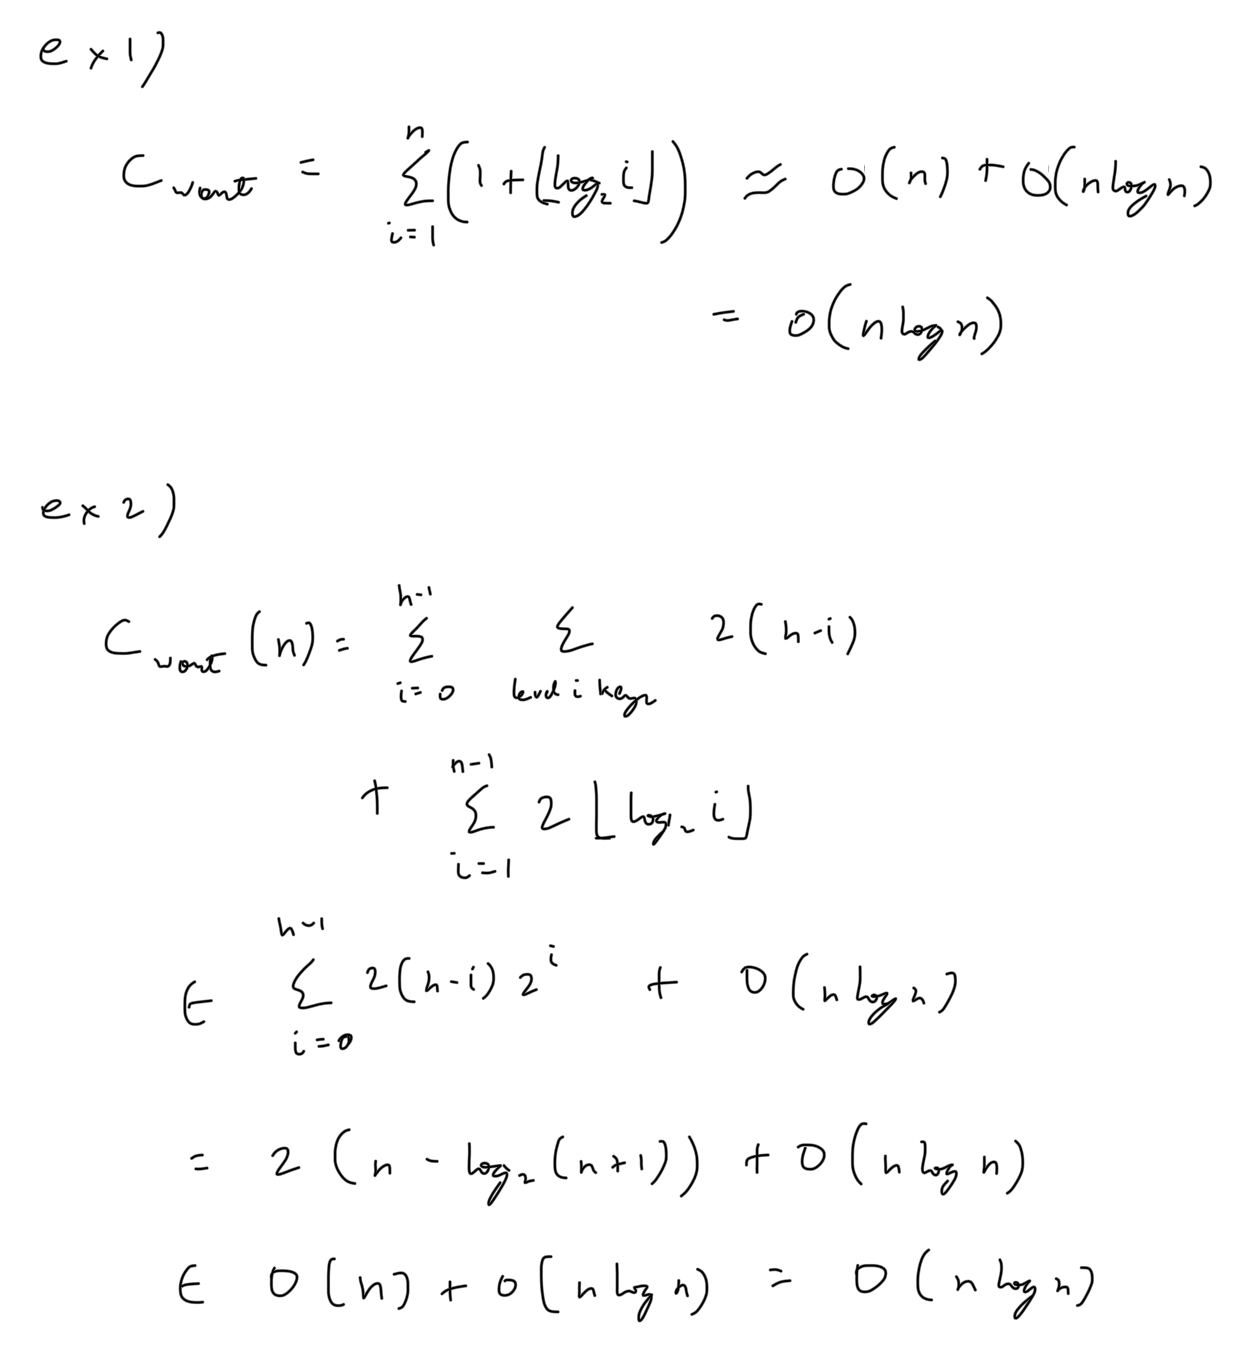 ex 1)
C worst = n Σ i=1 (1 + ⌊log₂ i⌋) ≈ O(n) + O(n log n)
= O(n log n)
ex 2)
C worst (n) = h-1 Σ i=0 Σ level i keys 2(h-i)
+ n-1 Σ i=1 2 ⌊log₂ i⌋
∈ h-1 Σ i=0 2(h-i) 2^i + O(n log n)
= 2(n - log₂(n+1)) + O(n log n)
∈ O(n) + O(n log n) = O(n log n)